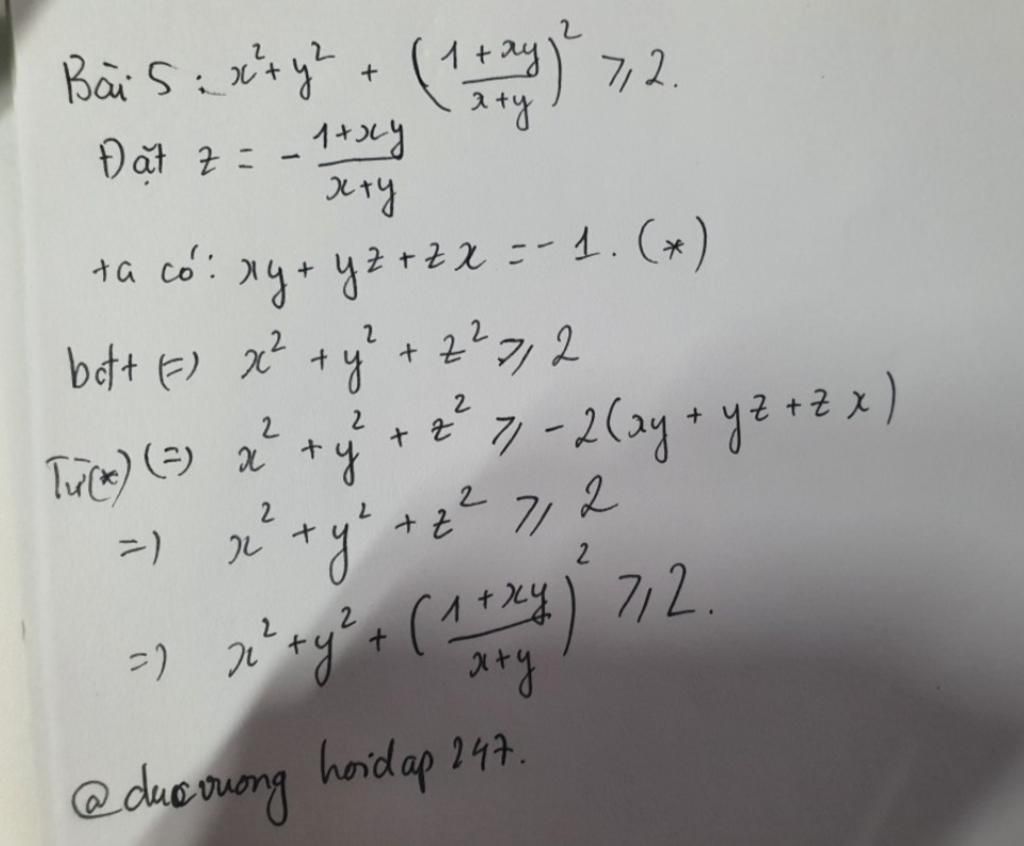 Bài 5: x² + y² + ((1+xy)/(x+y))² ⩾ 2.
Đặt z = - (1+xy)/(x+y)
ta có: xy + yz + zx = -1. (*)
bđt (=) x² + y² + z² ⩾ 2
Từ(*) (=) x² + y² + z² ⩾ -2(xy + yz + zx)
=) x² + y² + z² ⩾ 2
=) x² + y² + ((1+xy)/(x+y))² ⩾ 2.
@ducvuong hoidap 247.